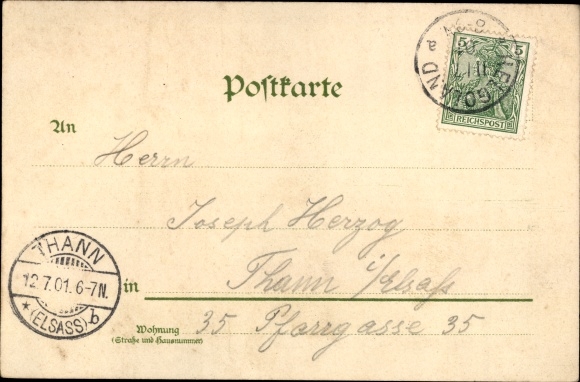 HELGOLAND
a
5 5
REICHSPOST
Postkarte
An
Herrn
Joseph Herzog
in Thann i/Elsass
Wohnung
(Straße und Hausnummer)
35 Pfarrgasse 35
THANN
12.7.01.6-7N.
* (ELSASS) b